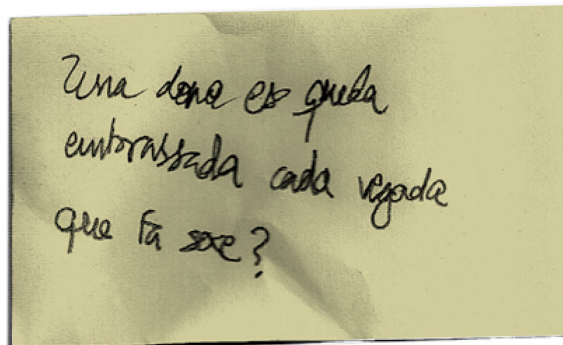 Una dona es queda
embrassada cada vegada
que fa sexe?